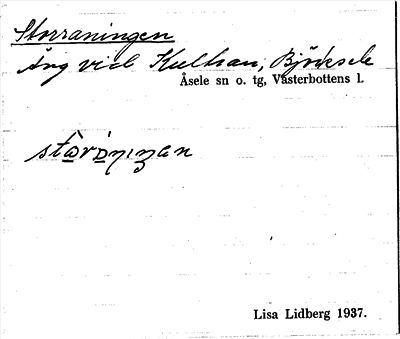 Storraningen
Äng vid Kultran, Björksele
Åsele sn o. tg, Västerbottens l.
Lisa Lidberg 1937.